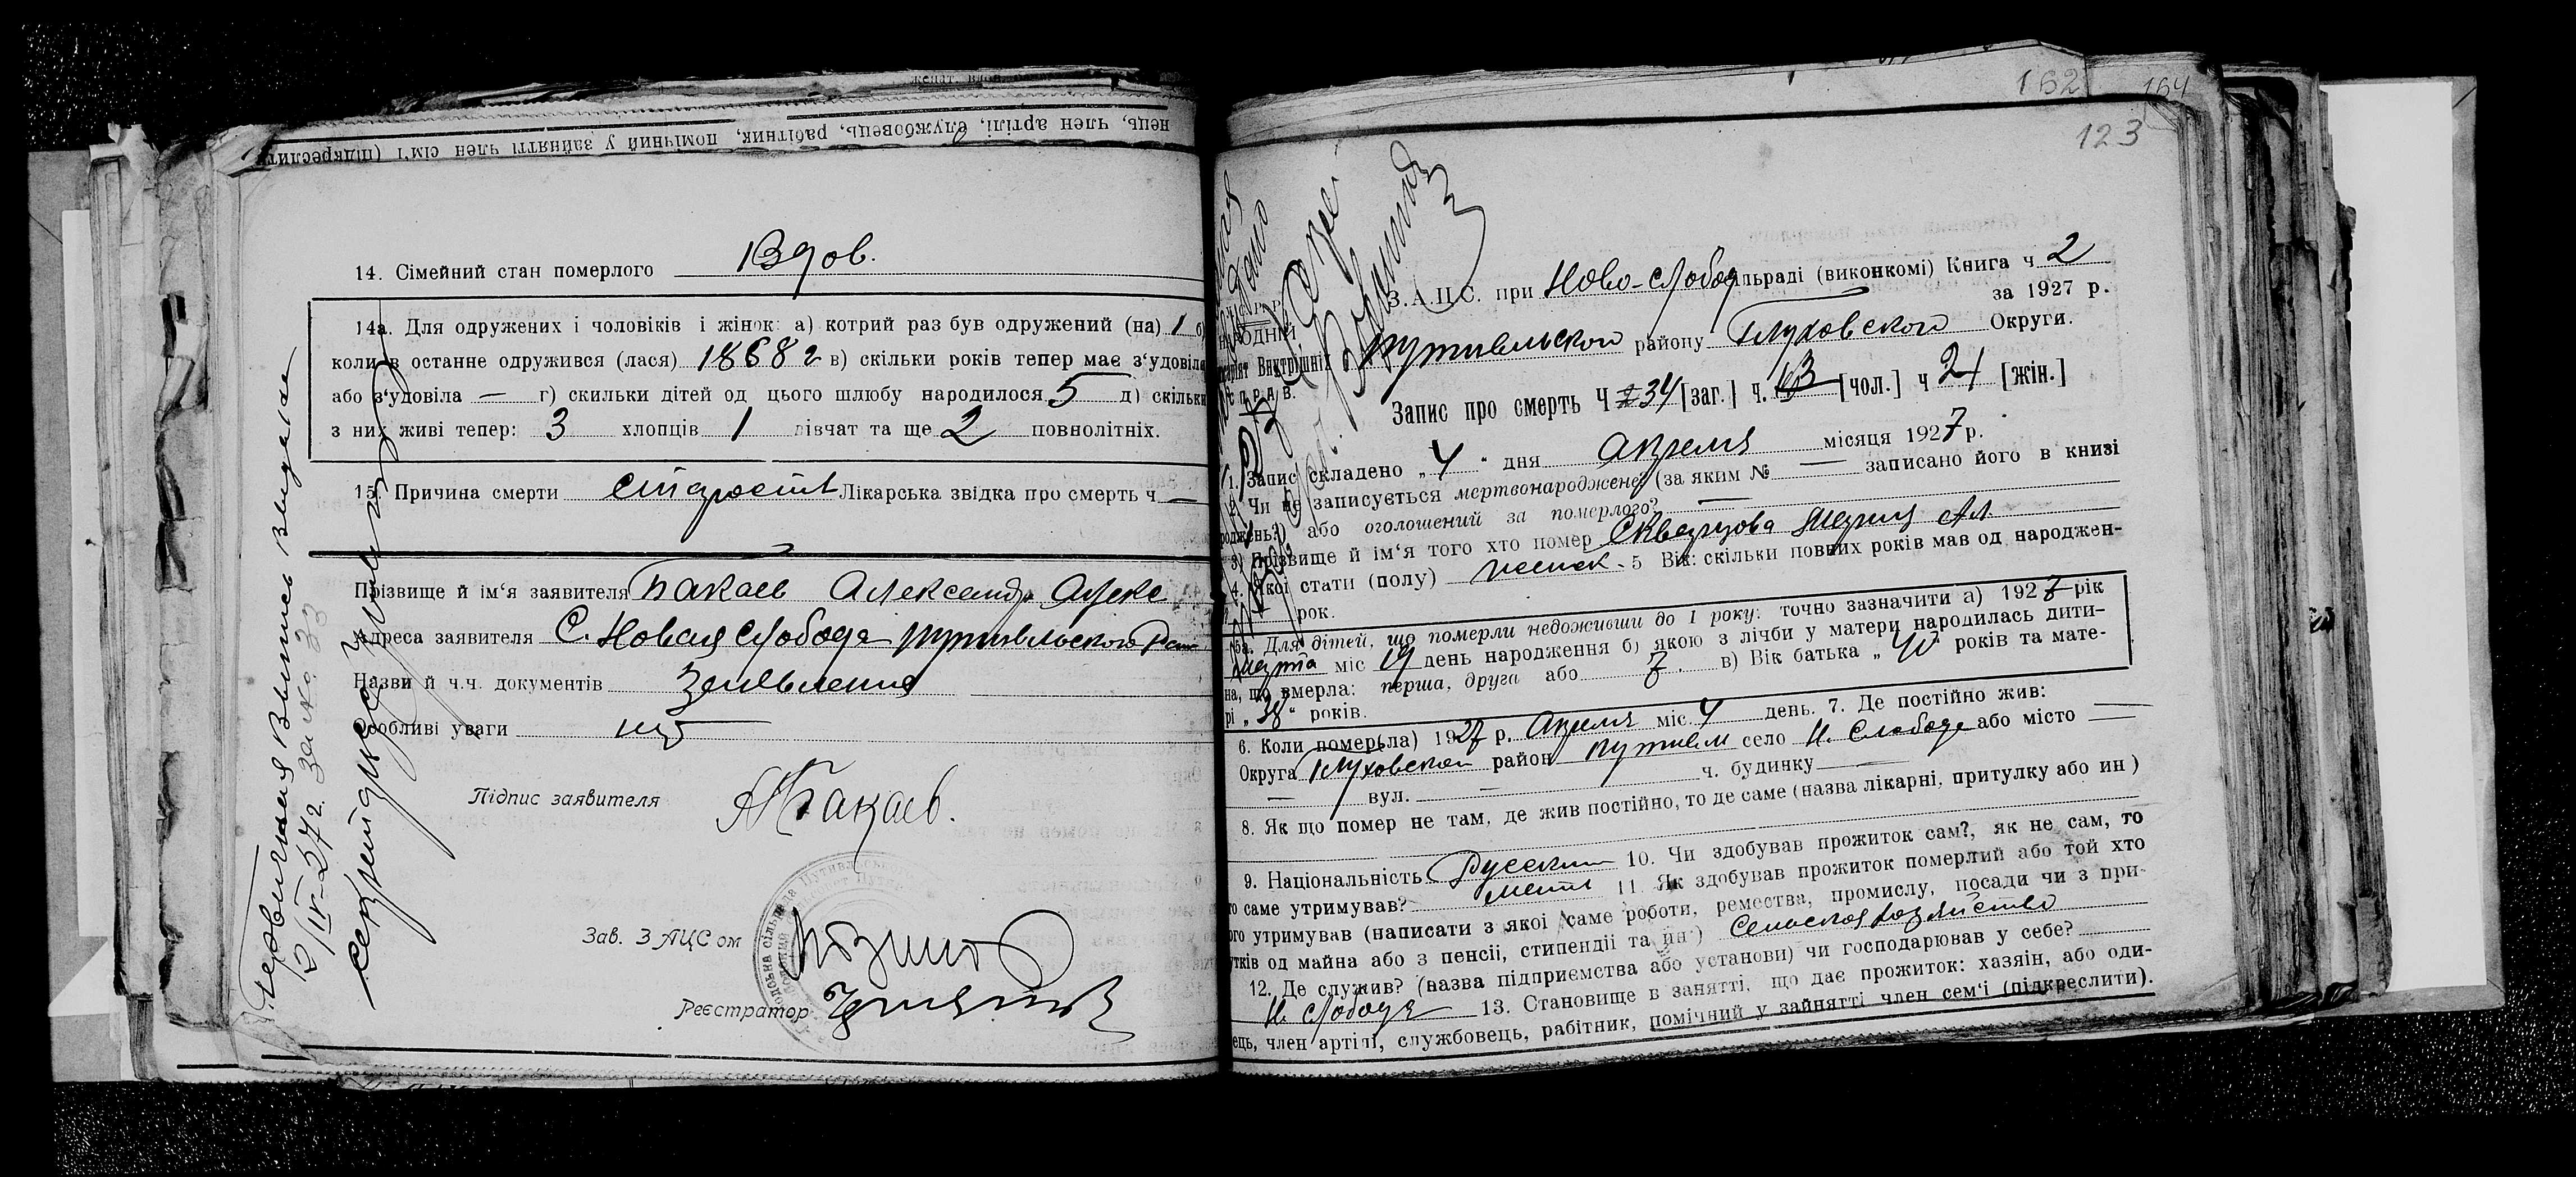 нець, член артілі, службовець, робітник, помічний у зайнятті член сім'ї (підкреслить
14. Сімейний стан померлого Вдов.
14а. Для одружених і чоловіків і жінок: а) котрий раз був одружений (на) 1
коли в останне одружився (лася) 1868 г в) скільки років тепер має з'удовіла
або з'удовіла — г) скильки дітей од цього шлюбу народилося 5 д) скільки
з них живі тепер: 3 хлопців 1 дівчат та ще 2 повнолітніх.
15. Причина смерти старость Лікарська звідка про смерть ч. —
Прізвище й ім'я заявителя Бакаев Александр Алекс
Адреса заявителя С. Новая Слобода Путивльского Рай
Назви й ч.ч. документів Заявление
Особливі уваги нет
Підпис заявителя АБакаев.
Зав. ЗАЦСом
Реєстратор
Первичная Выпись Выдана
5/IV-27г. за № 33
Секретарь
162 164
123
З.А.Ц.С. при Ново-Слобод ільраді (виконкомі) Книга ч 2
за 1927 р.
Путивльского району Глуховского Округи.
Запис про смерть Ч 34 [заг.] ч. 13 [чол.] ч 21 [жін.]
1. Запис складено „4" дня Апреля місяця 1927 р.
2. Чи не записується мертвонароджене, (за яким № — записано його в книзі
роджень?) або оголошений за померлого? —
3) Прізвище й ім'я того хто помер Скварцова Мария Ал
4. Якої стати (полу) женск. 5 Вік: скільки повних років мав од народжен-
рок.
5а. Для дітей, що померли недоживши до 1 року: точно зазначити а) 1927 рік
Марта міс 19 день народження б) якою з лічби у матери народилась дити-
на, що вмерла: перша, друга або 7. в) Вік батька „40" років та мате-
рі „38" років.
6. Коли помер(ла) 1927 р. Апреля міс. 4 день. 7. Де постійно жив:
Округа Глуховской район Путивл село Н. Слобода або місто —
— вул. — ч. будинку —
8. Як що помер не там, де жив постійно, то де саме (назва лікарні, притулку або ин)
9. Національність Русский 10. Чи здобував прожиток сам?, як не сам, то
то саме утримував? мать 11. Як здобував прожиток померлий або той хто
ого утримував (написати з якої саме роботи, ремества, промислу, посади чи з при-
утків од майна або з пенсії, стипендії та ин.) Сельское хозяйство
12. Де служив? (назва підприємства або установи) чи господарював у себе?
Н. Слобода 13. Становище в занятті, що дає прожиток: хазяін, або оди-
ець, член артілі, службовець, рабітник, помічний у зайнятті член сем'ї (підкреслити).